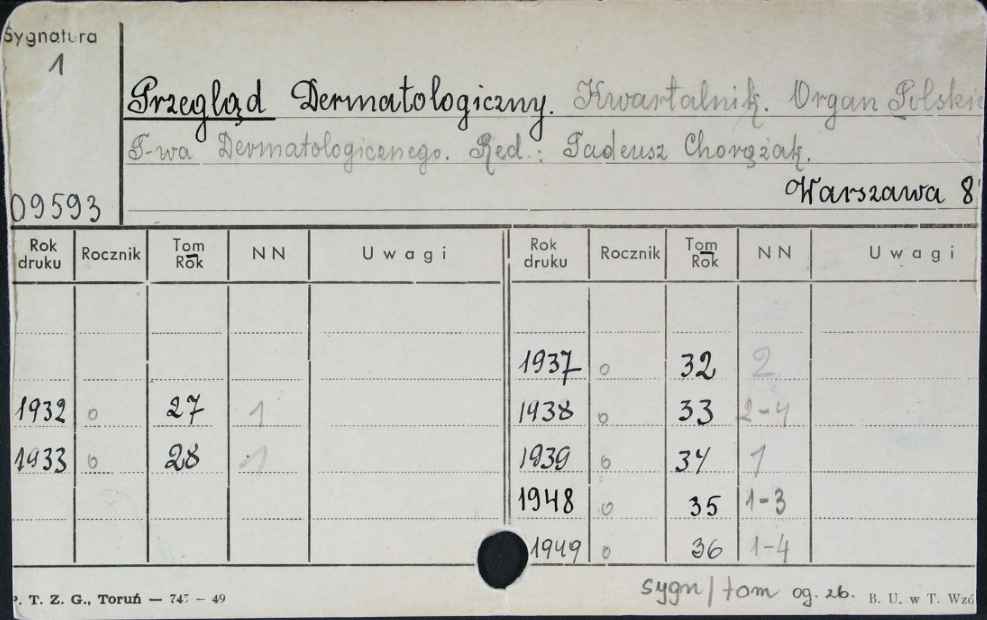 Sygnatura
1
Przegląd Dermatologiczny. Kwartalnik. Organ Polskie
T-wa Dermatologicznego. Red.: Tadeusz Chorążak.
09593
Warszawa 8
Rok druku Rocznik Tom Rok NN Uwagi Rok druku Rocznik Tom Rok NN Uwagi
1937 o 32 2
1932 o 27 1 1938 o 33 2-4
1933 o 28 1 1939 o 34 1
1948 o 35 1-3
1949 o 36 1-4
sygn/tom og. zb.
P. T. Z. G., Toruń — 747 — 49 B. U. w T. Wzó